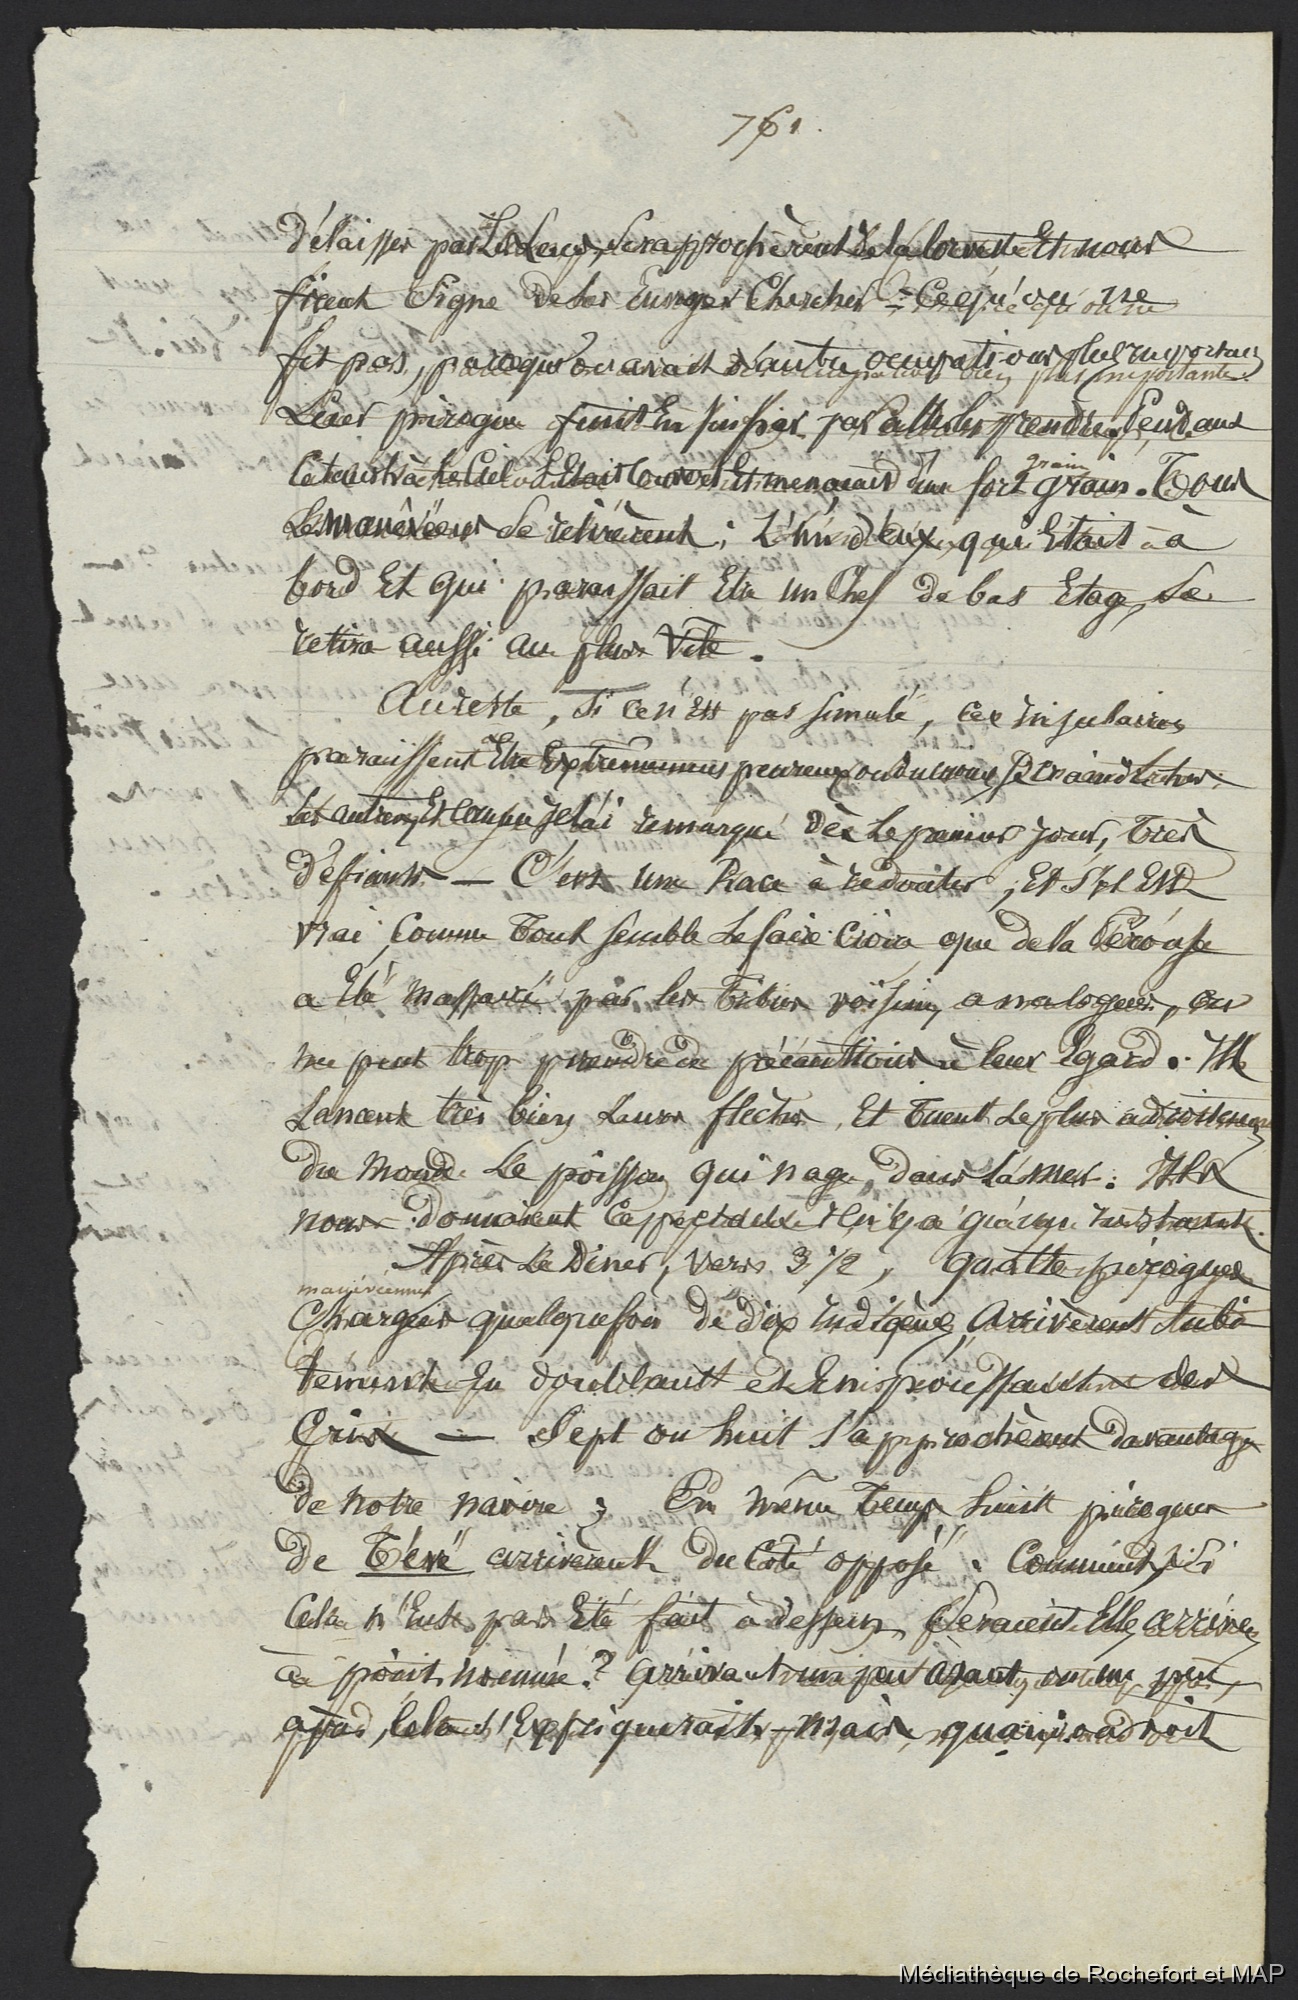 761.
délaissés par les leurs, se rapprochèrent de la corvette Et nous
firent Signe de les Envoyer Chercher = Ce qu'on ne
fit pas, parce qu'on avait d'autres occupations plus importantes
Leur pirogue finit Enfin par les prendre. Pendant
Ce tems là Le Ciel S'Etait Couvert Et menaçait d'un fort grain. Tous
Les se retirèrent ; L'un d'eux, qui Etait à
bord Et qui paraissait Etre un Chef de bas Etage, Se
retira aussi au plus Vite.
Au reste, Si ce n'Est pas simulé, ces insulaires
paraissent Etre Extrêmement peureux ou du moins craindre
Les autres, Et comme je l'ai remarqué dès Le premier jour, très
défiants. — C'est une Race à redouter ; Et S'il Est
vrai, Comme Tout semble Le faire Croire que de la Pérouse
a Eté massacré par les Tribus voisines, analogues, on
ne peut trop prendre de précautions à leur Egard. Ils
Lancent très bien Leurs flèches, Et Tuent Le plus adroitement
du Monde Le poisson qui nage dans La mer. Ils
nous donnaient Ce spectacle il n'y a qu'un instant.
Après Le Diner, vers 3 1/2, quatre pirogues
Chargées quelquefois de dix indigènes, arrivèrent Subi
tement En doublant et En poussant des
Cris — Sept ou huit S'approchèrent davantage
de Notre navire ; En même Temps huit pirogues
de Tévé arrivèrent du Côté opposé. Comment, Si
Cela n'Eut pas Eté fait à dessein, Seraient Elles arrivées
à point nommé ? Arrivant un peu avant, ou un peu
après, Cela S'Expliquerait - Mais, quand on voit